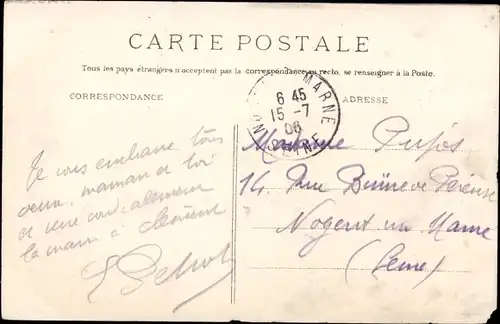 CARTE POSTALE
Tous les pays étrangers n'acceptent pas la correspondance au recto, se renseigner à la Poste.
CORRESPONDANCE
ADRESSE
MARNE
6 45
15 -7
06
SEINE
Je vous embrasse tous
deux, maman et toi
et serre cordialement
la main à Clément
Madame Pujos
14, Rue
Nogent sur Marne
(Seine)